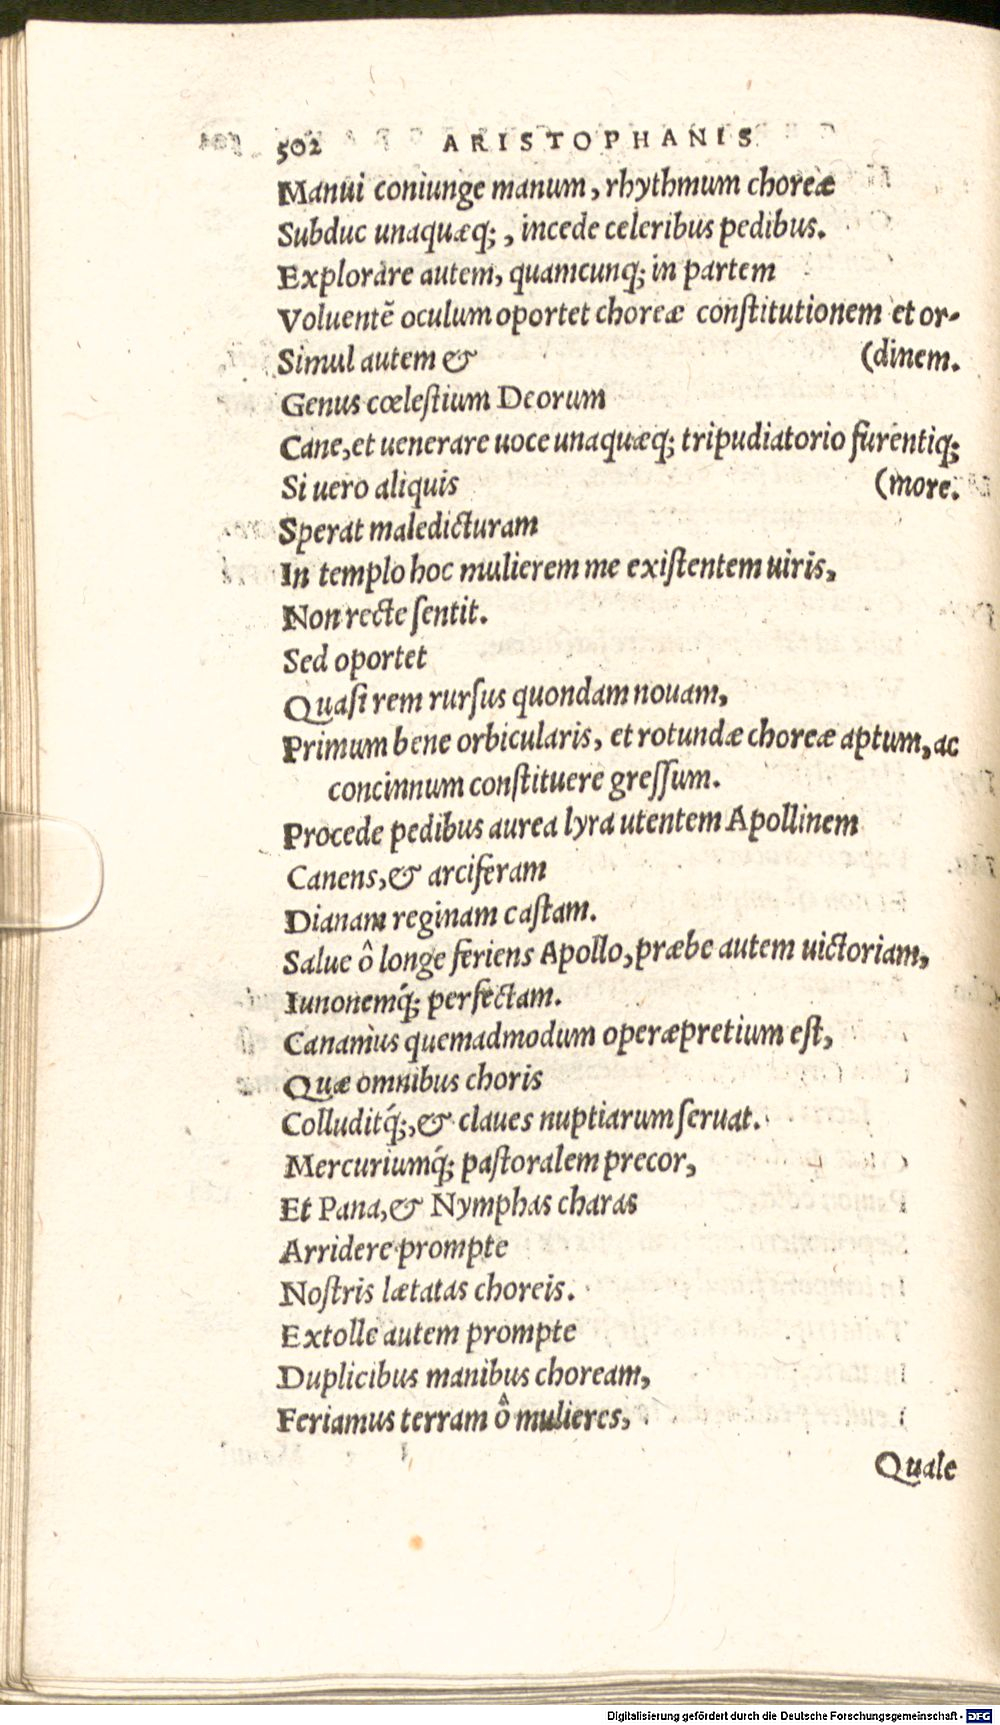 502 ARISTOPHANIS
Manui coniunge manum, rhythmum choreæ
Subduc unaquæq;, incede celeribus pedibus.
Explorare autem, quamcunq; in partem
Voluentẽ oculum oportet choreæ constitutionem et or-
Simul autem & (dinem.
Genus cœlestium Deorum
Cane, et uenerare uoce unaquæq; tripudiatorio furentiq;
Si uero aliquis (more.
Sperat maledicturam
In templo hoc mulierem me existentem uiris,
Non recte sentit.
Sed oportet
Quasi rem rursus quondam nouam,
Primum bene orbicularis, et rotundæ choreæ aptum, ac
concinnum constituere gressum.
Procede pedibus aurea lyra utentem Apollinem
Canens, & arciferam
Dianam reginam castam.
Salue ô longe feriens Apollo, præbe autem uictoriam,
Iunonemq́; perfectam.
Canamus quemadmodum operæpretium est,
Quæ omnibus choris
Colluditq́;, & claues nuptiarum seruat.
Mercuriumq́; pastoralem precor,
Et Pana, & Nymphas charas
Arridere prompte
Nostris lætatas choreis.
Extolle autem prompte
Duplicibus manibus choream,
Feriamus terram ô mulieres,
Quale
Digitalisierung gefördert durch die Deutsche Forschungsgemeinschaft - DFG